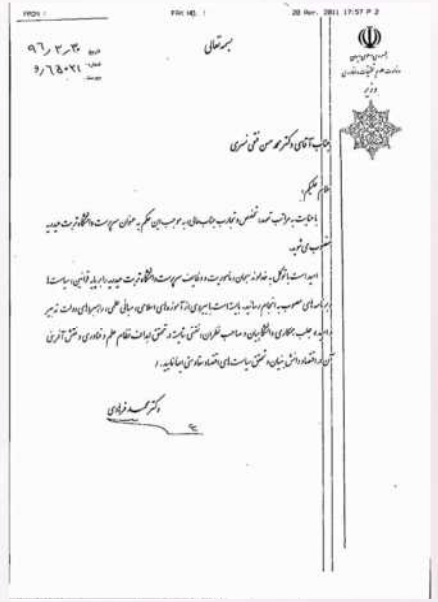 FROM : FAX NO. : 28 Apr. 2011 17:57 P 2
بسمه تعالی
جمهوری اسلامی ایران
وزارت علوم، تحقیقات و فناوری
وزیر
تاریخ ۹۶/۲/۳۰
شماره
پیوست
جناب آقای دکتر محمد حسن فتحی نسری
سلام علیکم؛
با عنایت به مراتب تعهد، تخصص و تجارب جناب‌عالی، به موجب این حکم به عنوان سرپرست دانشگاه تربت حیدریه
منصوب می‌شوید.
امید است با توکل به خداوند سبحان، ماموریت و وظایف سرپرست دانشگاه تربت حیدریه را بر پایه قوانین، سیاست‌ها
و برنامه‌های مصوب به انجام رسانید. بایسته است با پیروی از آموزه‌های اسلامی، مبانی علمی، راهبردهای دولت تدبیر
و امید و جلب همکاری دانشگاهیان و صاحب نظران، نقشی شایسته در تحقق اهداف نظام علم و فناوری و نقش آفرینی
آن در اقتصاد دانش بنیان و تحقق سیاست‌های اقتصاد مقاومتی ایفا نمایید.
دکتر محمد فرهادی